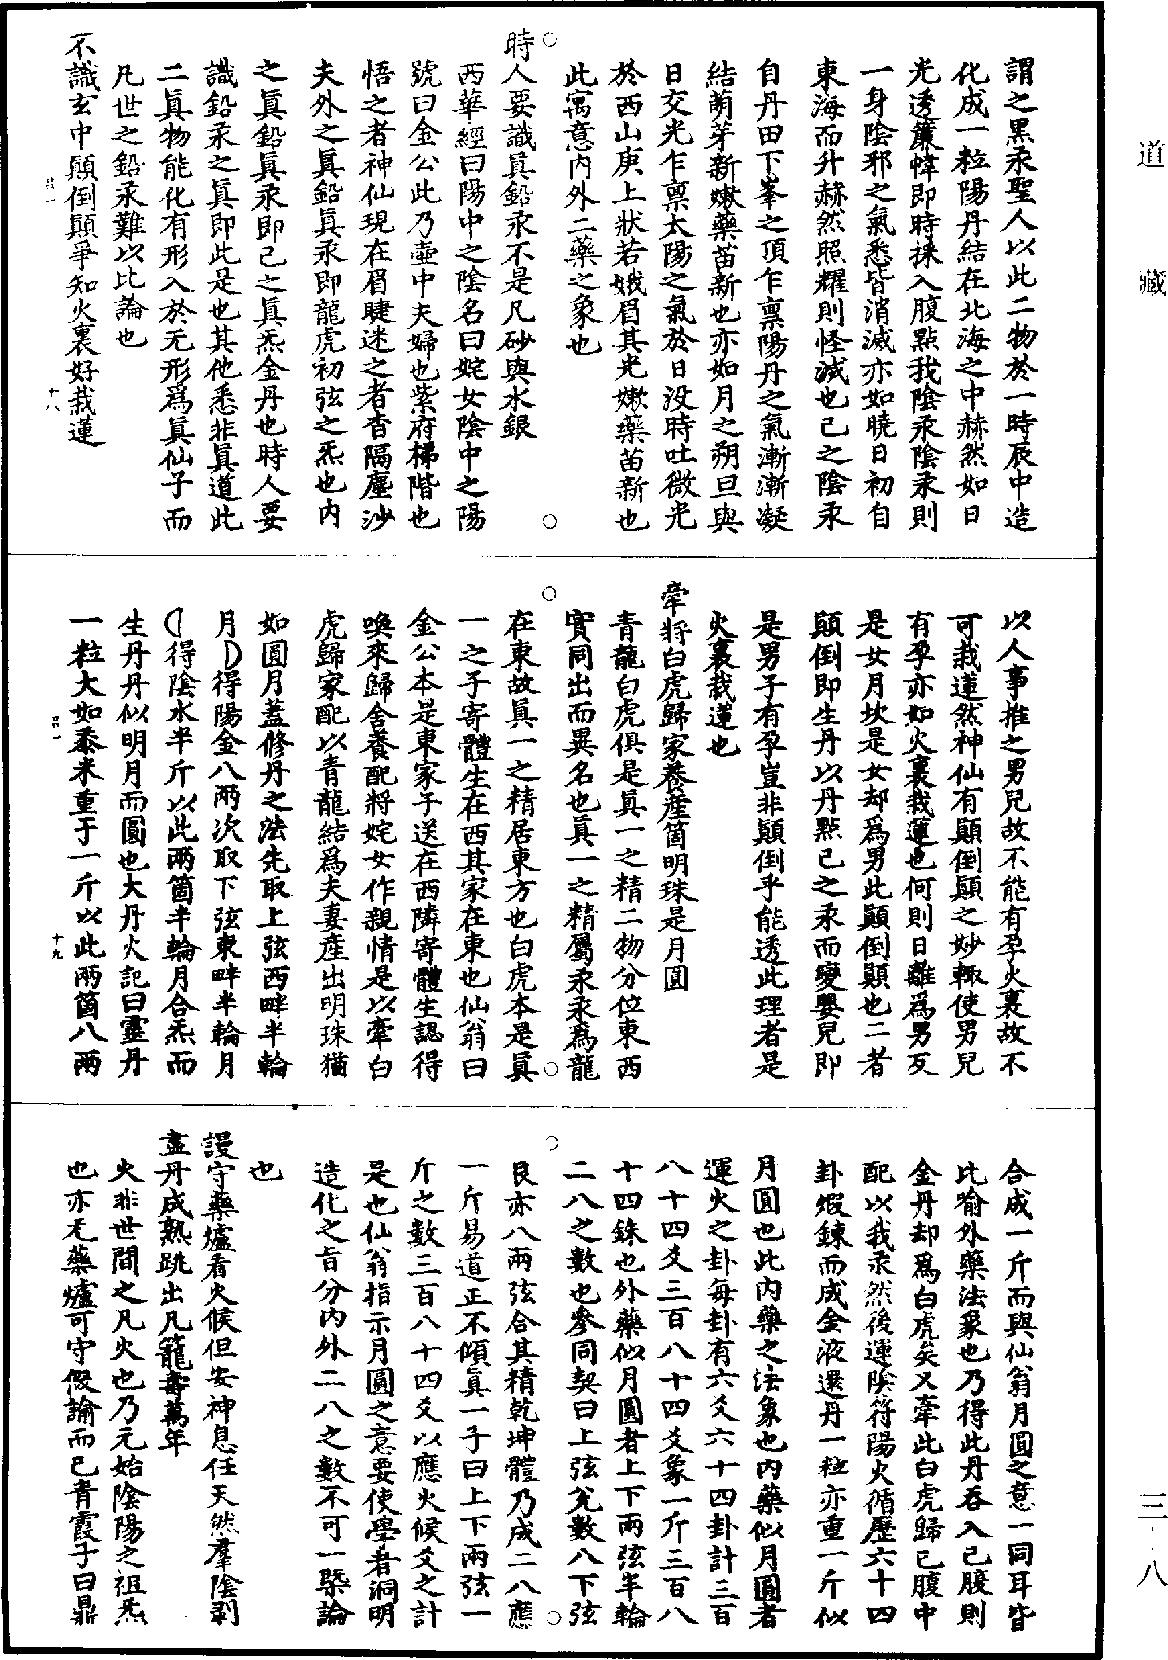 道藏
三一八
謂之黑汞聖人以此二物於一時辰中造
化成一粒陽丹結在北海之中赫然如日
光透簾幃即時採入腹點我陰汞陰汞則
一身陰邪之氣悉皆消滅亦如曉日初自
東海而升赫然照耀則怪滅也己之陰汞
自丹田下峯之頂乍稟陽丹之氣漸漸凝
結萌芽新嫩藥苗新也亦如月之朔旦與
日交光乍稟太陽之氣於日没時吐微光
於西山庚上狀若娥眉其光嫩藥苗新也
此寓意內外二藥之象也
時人要識眞鉛汞不是凡砂與水銀
西華經曰陽中之陰名曰姹女陰中之陽
號曰金公此乃壺中夫婦也紫府梯階也
悟之者神仙現在眉睫迷之者杳隔塵沙
夫外之眞鉛眞汞即龍虎初弦之炁也内
之眞鉛眞汞即己之眞炁金丹也時人要
識鉛汞之眞即此是也其他悉非眞道此
二眞物能化有形入於无形爲眞仙子而
凡世之鉛汞難以比論也
不識玄中顚倒顚爭知火裏好栽蓮
十八
以人事推之男兒故不能有孕火裏故不
可栽蓮然神仙有顚倒顚之妙輙使男兒
有孕亦如火裏栽蓮也何則日離爲男反
是女月坎是女却爲男此顚倒顚也二者
顚倒即生丹以丹點己之汞而變嬰兒即
是男子有孕豈非顚倒乎能透此理者是
火裏栽蓮也
牽將白虎歸家養產箇明珠是月圓
青龍白虎俱是眞一之精二物分位東西
實同出而異名也眞一之精屬汞汞爲龍
在東故眞一之精居東方也白虎本是眞
一之子寄體生在西其家在東也仙翁曰
金公本是東家子送在西隣寄體生認得
喚來歸舍養配將姹女作親情是以牽白
虎歸家配以青龍結爲夫妻產出明珠猶
如圓月蓋修丹之法先取上弦西畔半輪
月得陽金八兩次取下弦東畔半輪月
得陰水半斤以此兩箇半輪月合炁而
生丹丹似明月而圓也大丹火記曰靈丹
一粒大如黍米重于一斤以此兩箇八兩
十九
合成一斤而與仙翁月圓之意一同耳皆
比喻外藥法象也乃得此丹吞入己腹則
金丹却爲白虎矣又牽此白虎歸己腹中
配以我汞然後運陰符陽火循歷六十四
卦煅鍊而成金液還丹一粒亦重一斤似
月圓也此内藥之法象也内藥似月圓者
運火之卦每卦有六爻六十四卦計三百
八十四爻三百八十四爻象一斤三百八
十四銖也外藥似月圓者上下兩弦半輪
二八之數也參同契曰上弦兊數八下弦
艮亦八兩弦合其精乾坤體乃成二八應
一斤易道正不傾眞一子曰上下兩弦一
斤之數三百八十四爻以應火候爻之計
是也仙翁指示月圓之意要使學者洞明
造化之旨分内外二八之數不可一槩論
也
謾守藥爐看火候但安神息任天然羣陰剥
盡丹成熟跳出凡籠壽萬年
火非世間之凡火也乃元始陰陽之祖炁
也亦无藥爐可守假論而已青霞子曰鼎